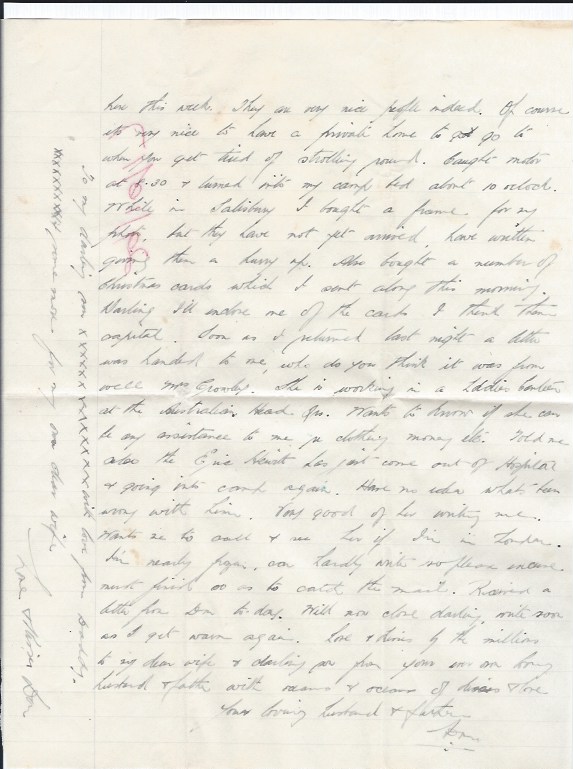 here this week. They are very nice people indeed. Of course
its very nice to have a private home to go to
when you get tired of strolling round. Caught motor
at 8.30 & turned into my camp bed about 10 oclock.
While in Salisbury I bought a frame for my
photo, but they have not yet arrived, have written
giving them a hurry up. Also bought a number of
Christmas cards which I sent along this morning.
Darling I'll enclose one of the cards I think them
capital. Soon as I returned last night a letter
was handed to me, who do you think it was from
well Mrs . She is working in a Ladies Canteen
at the Australian Head Qrs. Wants to know if she can
be any assistance to me, re clothing money etc. Told me
also the Eric has just come out of Hospital
& going into camp again. Have no idea whats been
wrong with him. Very good of her writing me.
Wants me to call & see her if I'm in London.
I'm nearly frozen, can hardly write so please excuse
must finish so as to catch the mail. Received a
letter from to-day. Will now close darling, write soon
as I get warm again. Love & kisses by the millions
to my dear wife & darling son from your ever loving
husband & father with oceans & oceans of kisses & love
Your loving husband & father
To my darling son x xxxx xxxxxxxx with love from Daddy.
xxxxxxxxxx, some more for my own dear wife
Love & kisses